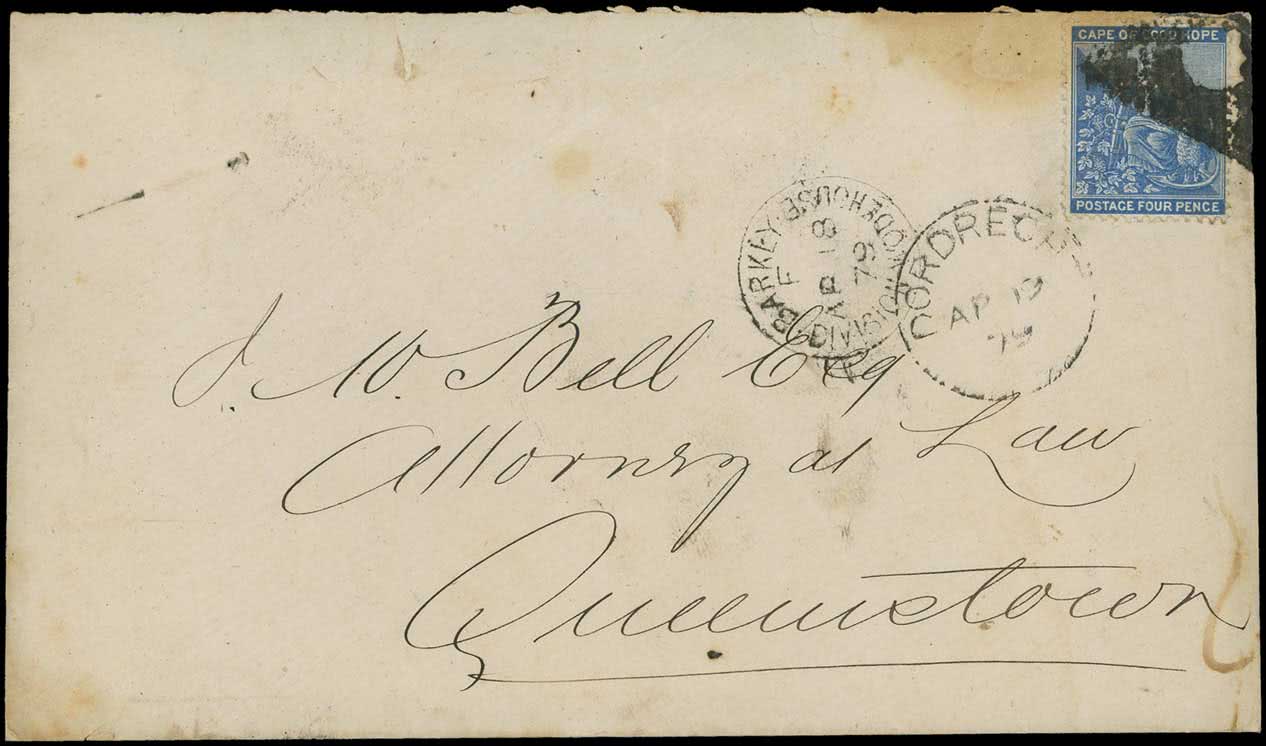 CAPE OF GOOD HOPE
POSTAGE FOUR PENCE
BARKLY
F
AP 18
79
DORDRECHT
AP 19
79
J. W. Bell Esq
Attorney at Law
Queenstown